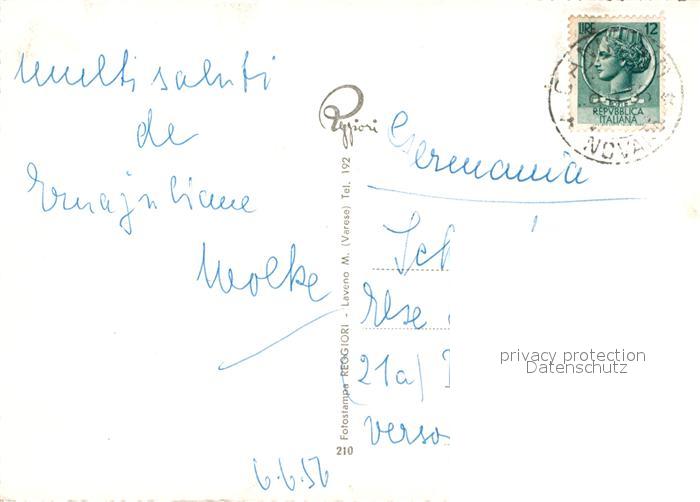 multi saluti
de
Ernajuliane
Molke
6.6.56
Reggiori
210 Fotostampa REGGIORI - Laveno M. (Varese) Tel. 192
LIRE 12
REPVBBLICA
ITALIANA
NOVARA
Germania
Sch
Else
(21a)
verso
privacy protection
Datenschutz